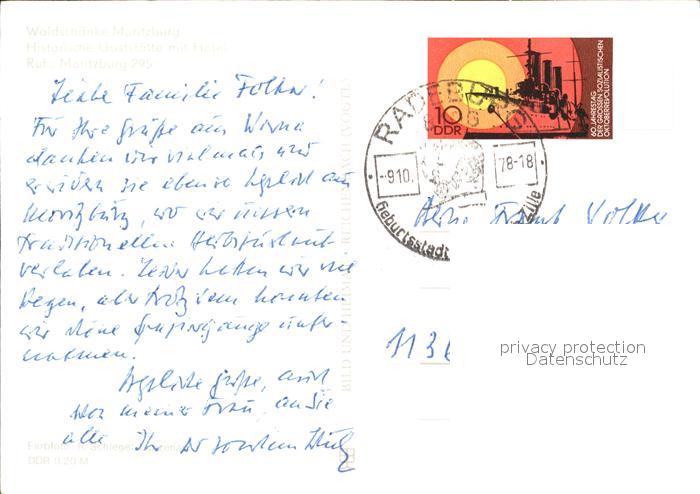 Waldschänke Moritzburg
Historische Gaststätte mit Hotel
Ruf: Moritzburg 295
Liebe Familie
Für Ihre Grüße aus
danken wir vielmals und
erwidern sie ebenso herzlich aus
Moritzburg, wo wir unsern
traditionellen Herbsturlaub
verleben. Leider hatten wir viel
Regen, aber trotzdem konnten
wir schöne Spaziergänge unter-
nehmen.
Herzliche Grüße, auch
von meiner Frau, an Sie
alle Ihr
DDR 0,20 M
BILD UND HEIMAT REICHENBACH
10
DDR
60. JAHRESTAG
DER GROSSEN SOZIALISTISCHEN
OKTOBERREVOLUTION
RADEBURG
-9.10.
78-18
Geburtsstadt
Herrn Frank
113
privacy protection
Datenschutz